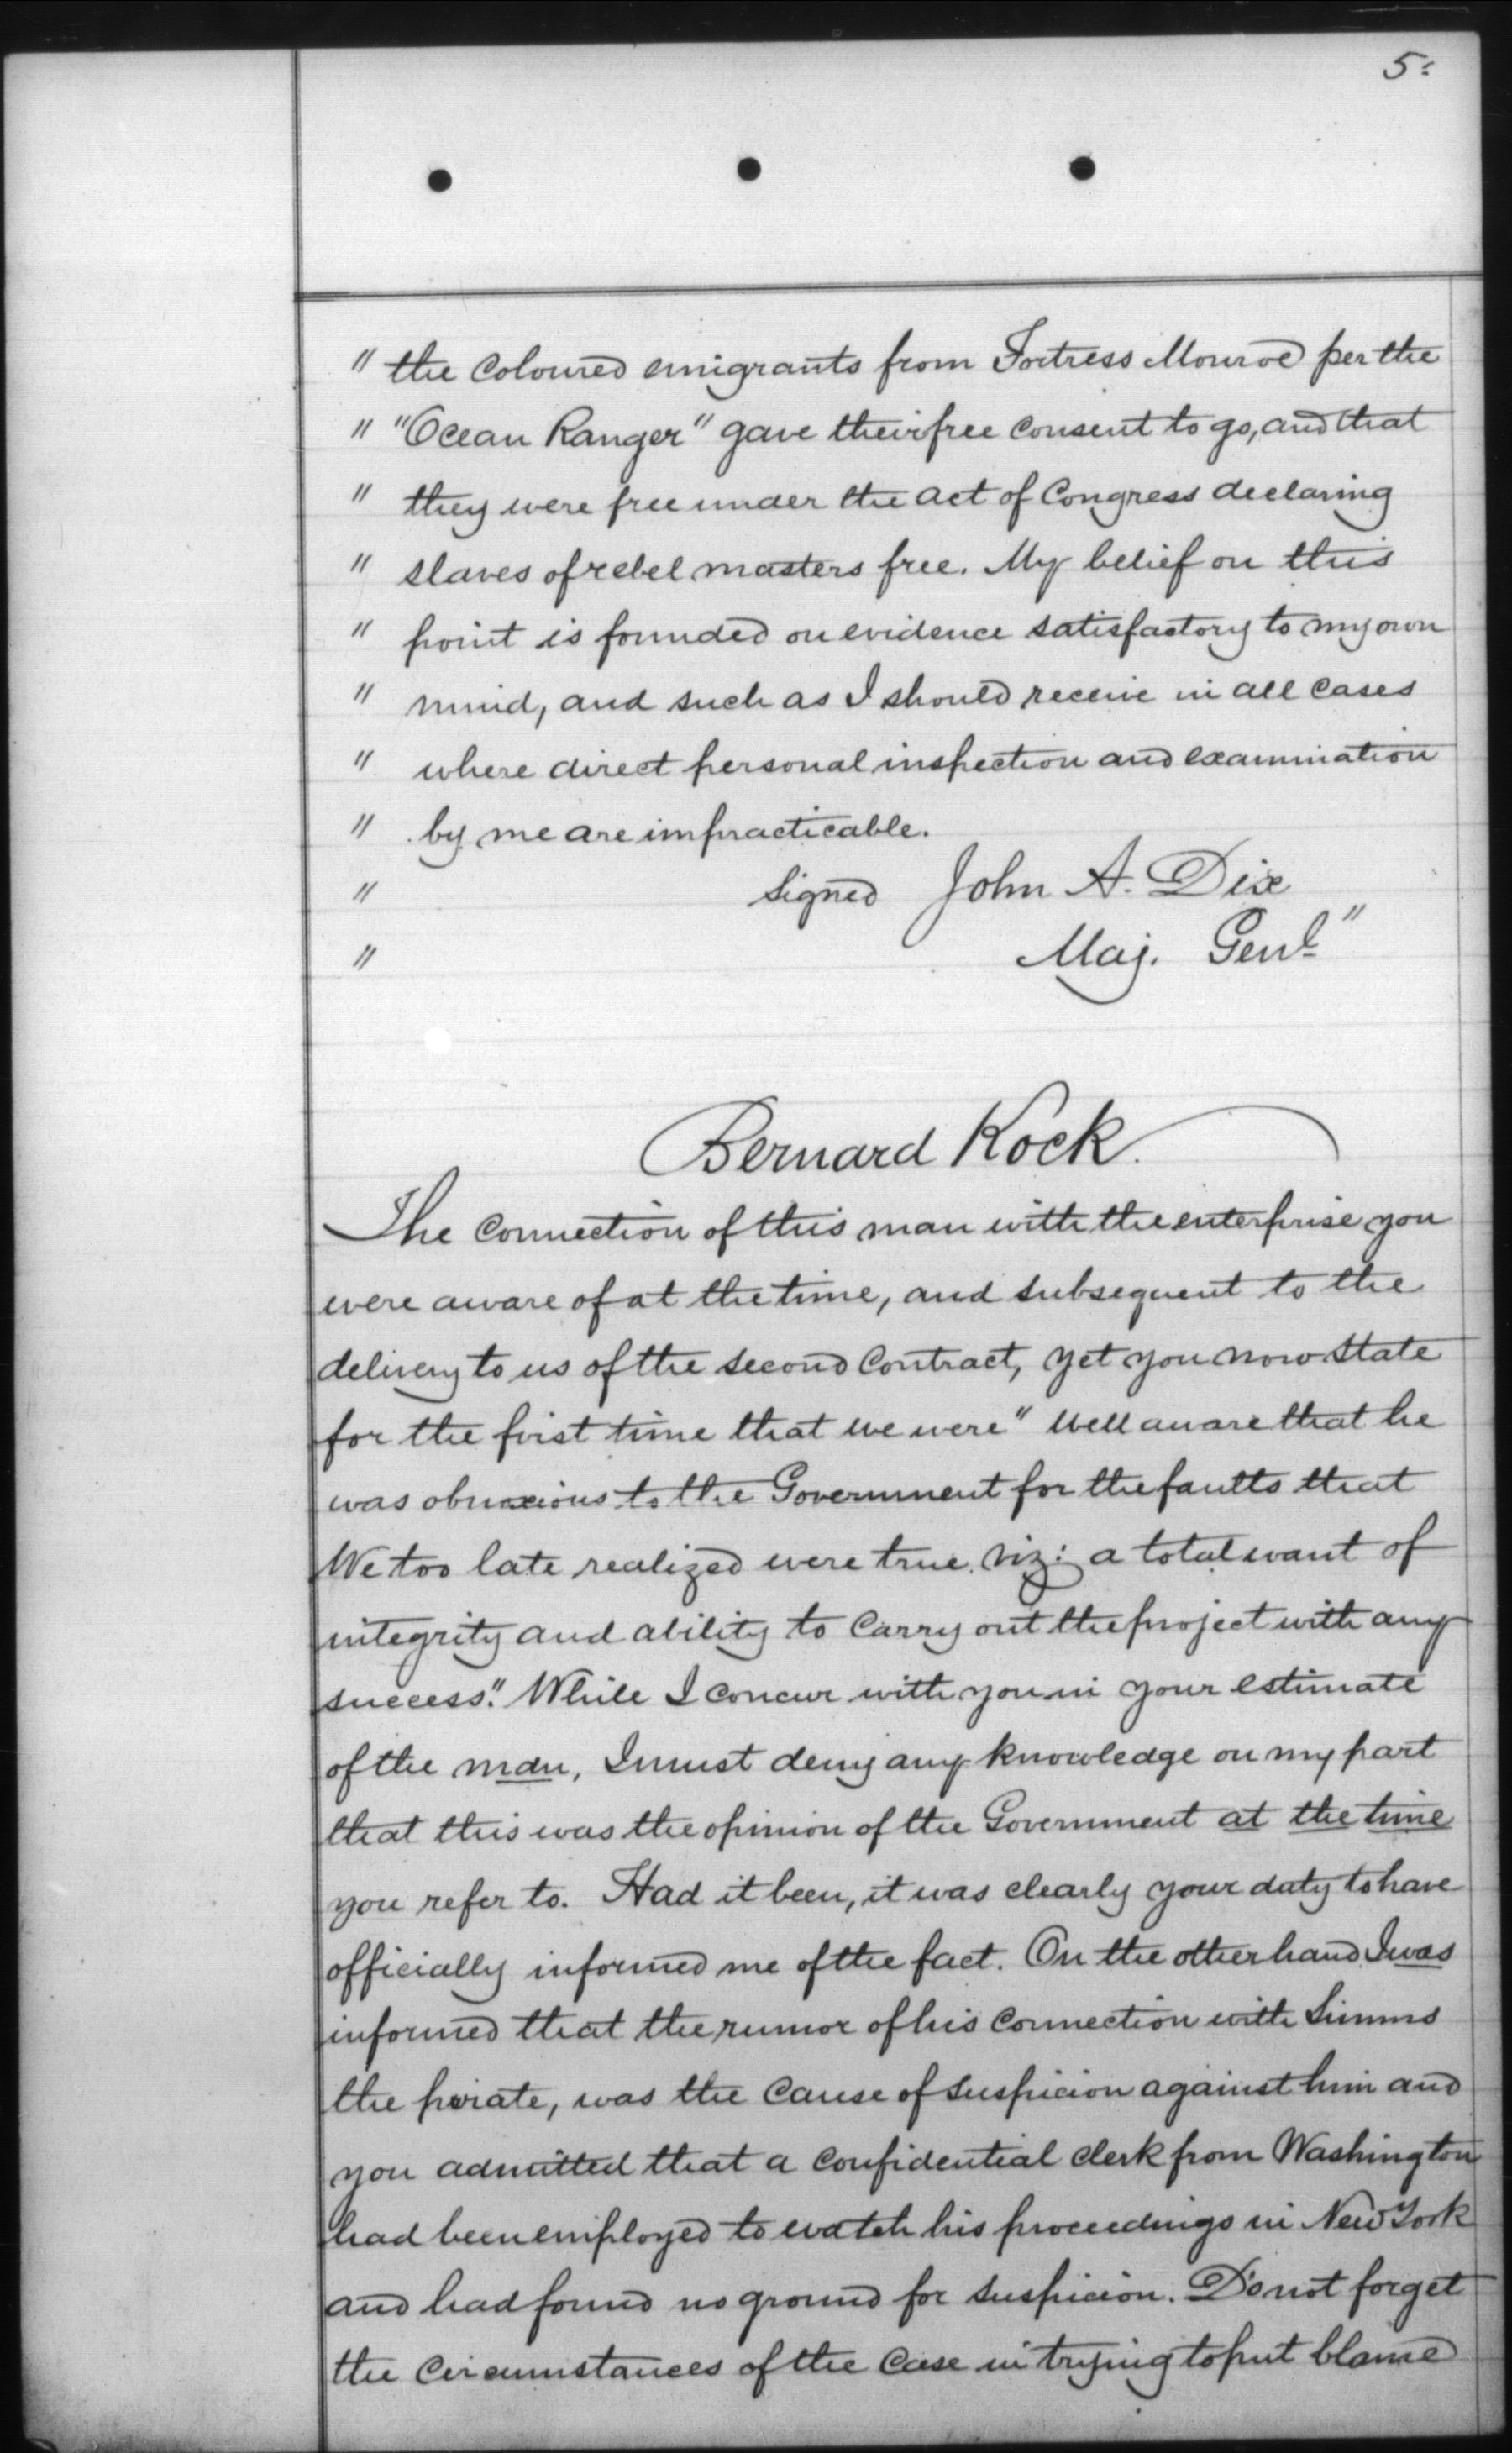 5:
" the coloured emigrants from Fortress Monroe per the
" "Ocean Ranger" gave their free consent to go, and that
" they were free under the act of Congress declaring
" slaves of rebel masters free. My belief on this
" point is founded on evidence satisfactory to my own
" mind, and such as I should receive in all cases
" where direct personal inspection and examination
" by me are impracticable.
" signed John A. Dix
" Maj. Genl"
Bernard Kock.
The connection of this man with the enterprise you
were aware of at the time, and subsequent to the
delivery to us of the second Contract, yet you now state
for the first time that we were "well aware that he
was obnoxious to the Government for the faults that
We too late realized were true. viz: a total want of
integrity and ability to carry out the project with any
success". While I concur with you in your estimate
of the man, I must deny any knowledge on my part
that this was the opinion of the Government at the time
you refer to. Had it been, it was clearly your duty to have
officially informed me of the fact. On the other hand I was
informed that the rumor of his connection with Simms
the pirate, was the cause of suspicion against him and
you admitted that a confidential clerk from Washington
had been employed to watch his proceedings in New York
and had found no ground for suspicion. Do not forget
the circumstances of the case in trying to put blame